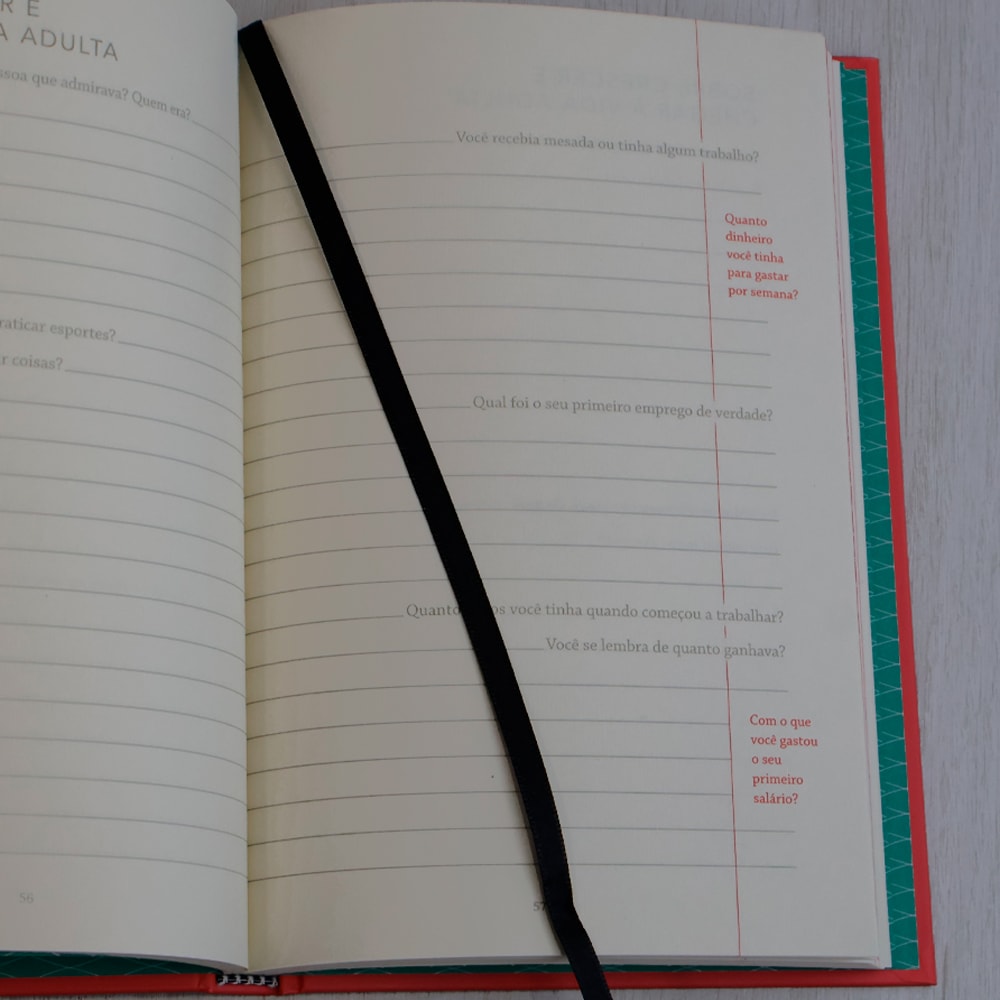 R E
A ADULTA
ssoa que admirava? Quem era?
raticar esportes?
r coisas?
56
Você recebia mesada ou tinha algum trabalho?
Quanto
dinheiro
você tinha
para gastar
por semana?
Qual foi o seu primeiro emprego de verdade?
Quanto os você tinha quando começou a trabalhar?
Você se lembra de quanto ganhava?
Com o que
você gastou
o seu
primeiro
salário?
57